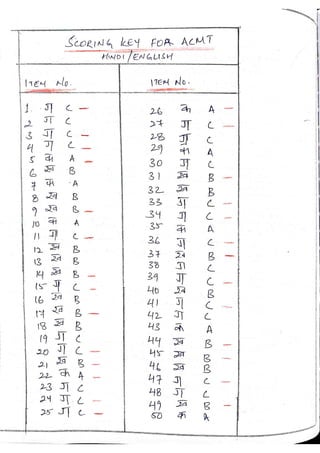 SCORING KEY FOR ACMT
HINDI/ENGLISH
ITEM No.
1. ग C –
2 ग C
3 ग C –
4 ग C –
5 क A –
6 ख B
7 क A
8 ख B
9 ख B –
10 क A
11 ग C –
12 ख B
13 ख B
14 ख B –
15 ग C
16 ख B
17 ख B –
18 ख B
19 ग C
20 ग C –
21 ख B –
22 क A –
23 ग C
24 ग C –
25 ग C –
ITEM No.
26 क A –
27 ग C –
28 ग C
29 क A
30 ग C
31 ख B –
32 ख B
33 ग C –
34 ग C –
35 क A
36 ग C –
37 ख B –
38 ग C
39 ग C –
40 ख B
41 ग C
42 ग C –
43 क A
44 ख B –
45 ख B –
46 ख B
47 ग C –
48 ग C
49 ख B –
50 क A